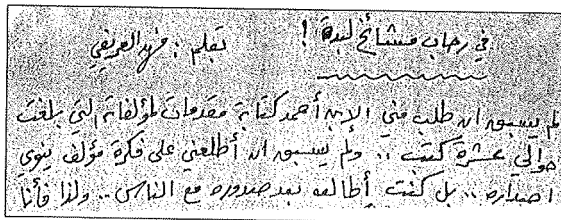 في رحاب مشائخ لبدة ! بقلم : فريد العريفي
لم يسبق ان طلب مني الابن أحمد كتابة مقدمات لمؤلفاته التي بلغت
حوالي عشرة كتب .. ولم يسبق ان أطلعني على فكرة مؤلف ينوي
اصداره .. بل كنت أطالعه بعد صدوره مع الناس .. ولذا فأنا